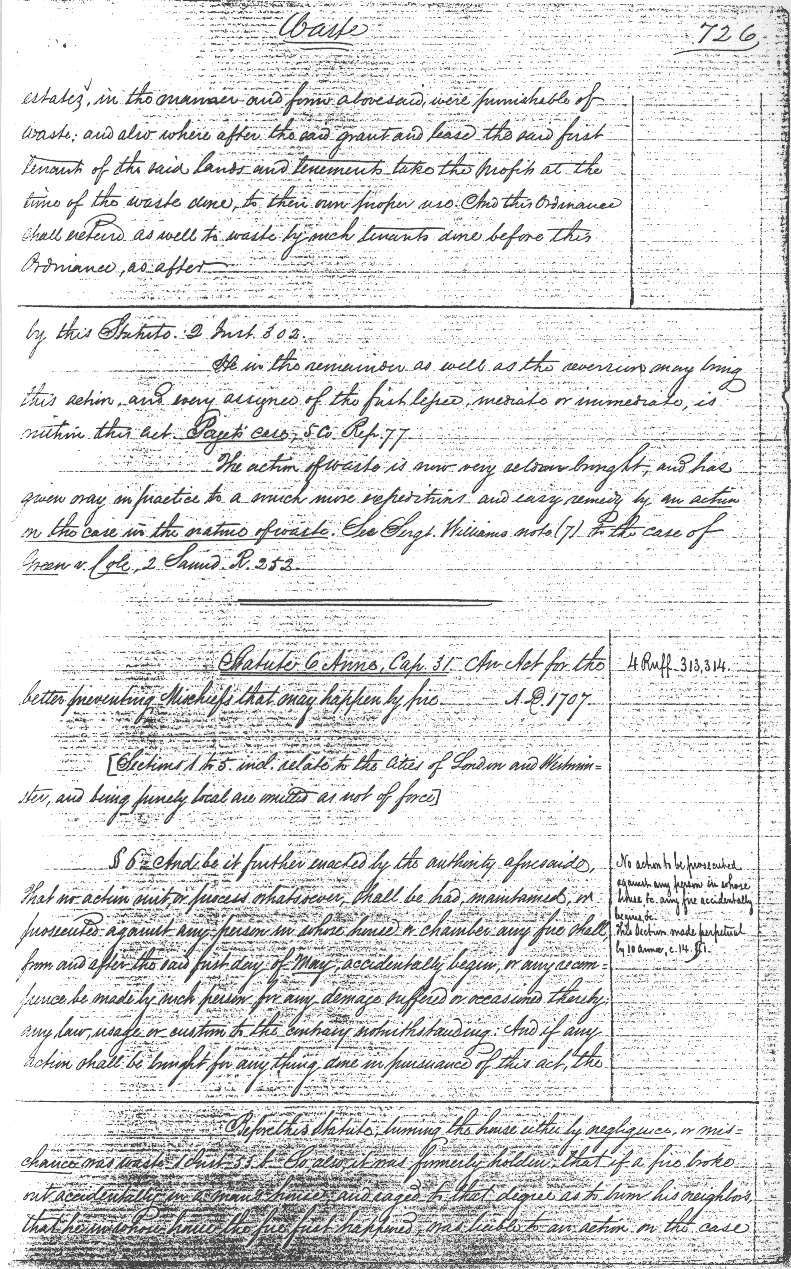 Waste
726.
estates, in the manner and form abovesaid, were punishable of
waste; and also where after the said grant and lease the said first
tenant of the said lands and tenements take the profits at the
time of the waste done, to their own proper use. And this Ordinance
shall extend as well to waste by such tenants done before this
Ordinance, as after
by this Statute. 2 Inst. 302.
He in the remainder as well as the reversion may bring
this action, and every assignee of the first lessee, mediate or immediate, is
within this act. Paget's case, 5 Co. Rep. 77
The action of waste is now very seldom brought, and has
given way in practice to a much more expeditious and easy remedy by an action
on the case in the nature of waste. See Sergt. Williams note (7) to the case of
Green v. Cole, 2 Saund. R. 252.
Statute 6 Anne, Cap. 31 An Act for the
better preventing Mischiefs that may happen by fire A.D. 1707.
4 Ruff. 313, 314.
[Sections 1 to 5 incl. relate to the Cities of London and Westmin=
ster, and being purely local are omitted as not of force]
§ 6 = And be it further enacted by the authority aforesaid,
That no action suit or process whatsoever, shall be had, maintained, or
prosecuted against any person in whose house or chamber any fire shall,
from and after the said first day of May, accidentally begin, or any recom=
pence be made by such person for any damage suffered or occasioned thereby;
any law, usage or custom to the contrary notwithstanding: And if any
action shall be brought for any thing done in pursuance of this act, the
No action to be prosecuted
against any person in whose
house &c. any fire accidentally
begins, &c
This Section made perpetual
by 10 Anne, c. 14. § 1.
Before this Statute, burning the house either by negligence, or mis=
chance was waste 1 Inst. 53. b. So also it was formerly holden, that if a fire broke
out accidentally in a man's house and raged to that degree as to burn his neighbor,
that he in whose house the fire first happened, was liable to an action on the case